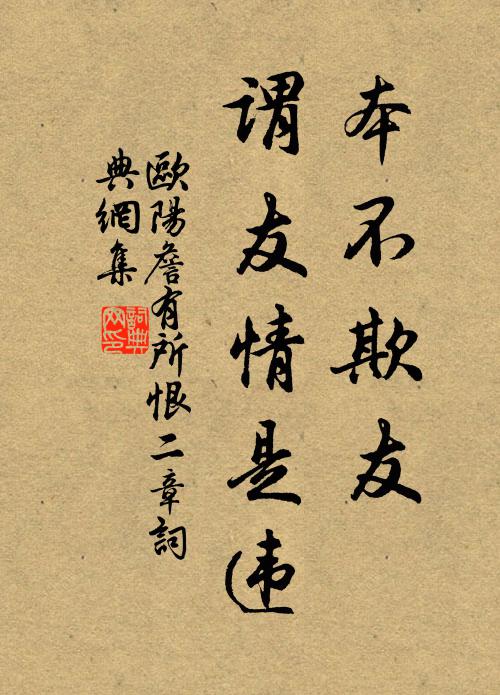 本不欺友
谓友情是违
歐陽詹有所恨二章詞
典網集
詞典
网印